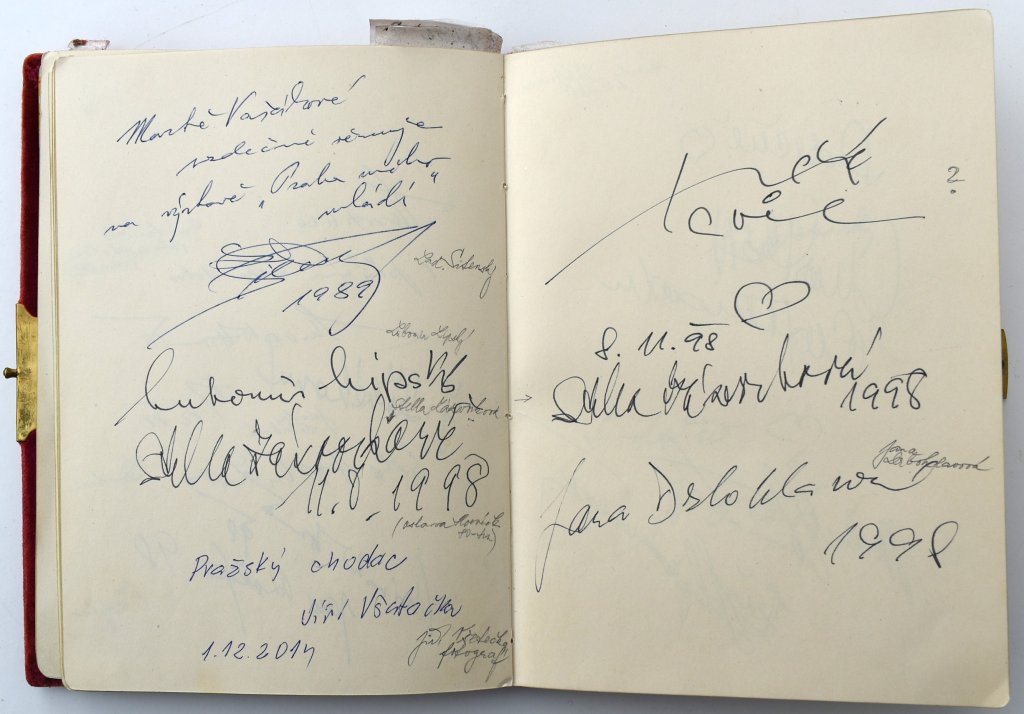 Martě Vaščákové
vzdečně věnuje
na výstavě „Praha mého
mládí"
1989
Lad. Sitenský
Lubomír Lipský
Lubomír Lipský
Stella Zázvorková
Stella Zázvorková
11.8.1998
(oslava Horníček
Pražský chodec
Jiří Všetečka
1.12.2014
Jiří Všetečka
fotograf
?
8.11.98
Stella Zázvorková
1998
Jana
Bohdalová
Jana Bohdalová
1998